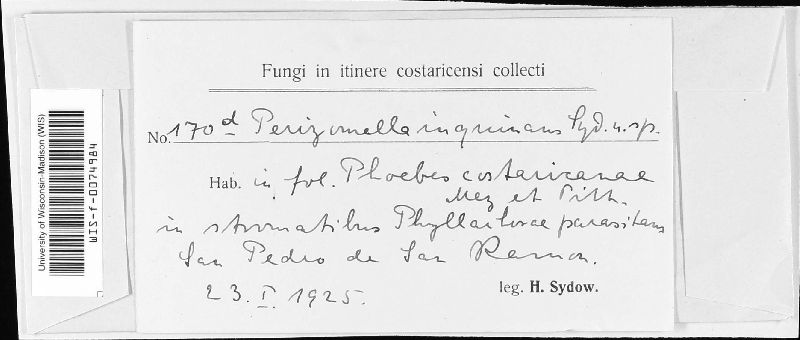 Fungi in itinere costaricensi collecti
No. 170d Perizomella inquinans Syd. n. sp.
Hab. in fol. Phoebes costaricanae
Mez et Pitt.
in stromatibus Phyllachorae parasitans
San Pedro de San Ramon.
23. I. 1925.
leg. H. Sydow.
University of Wisconsin-Madison (WIS)
WIS-f-0074984